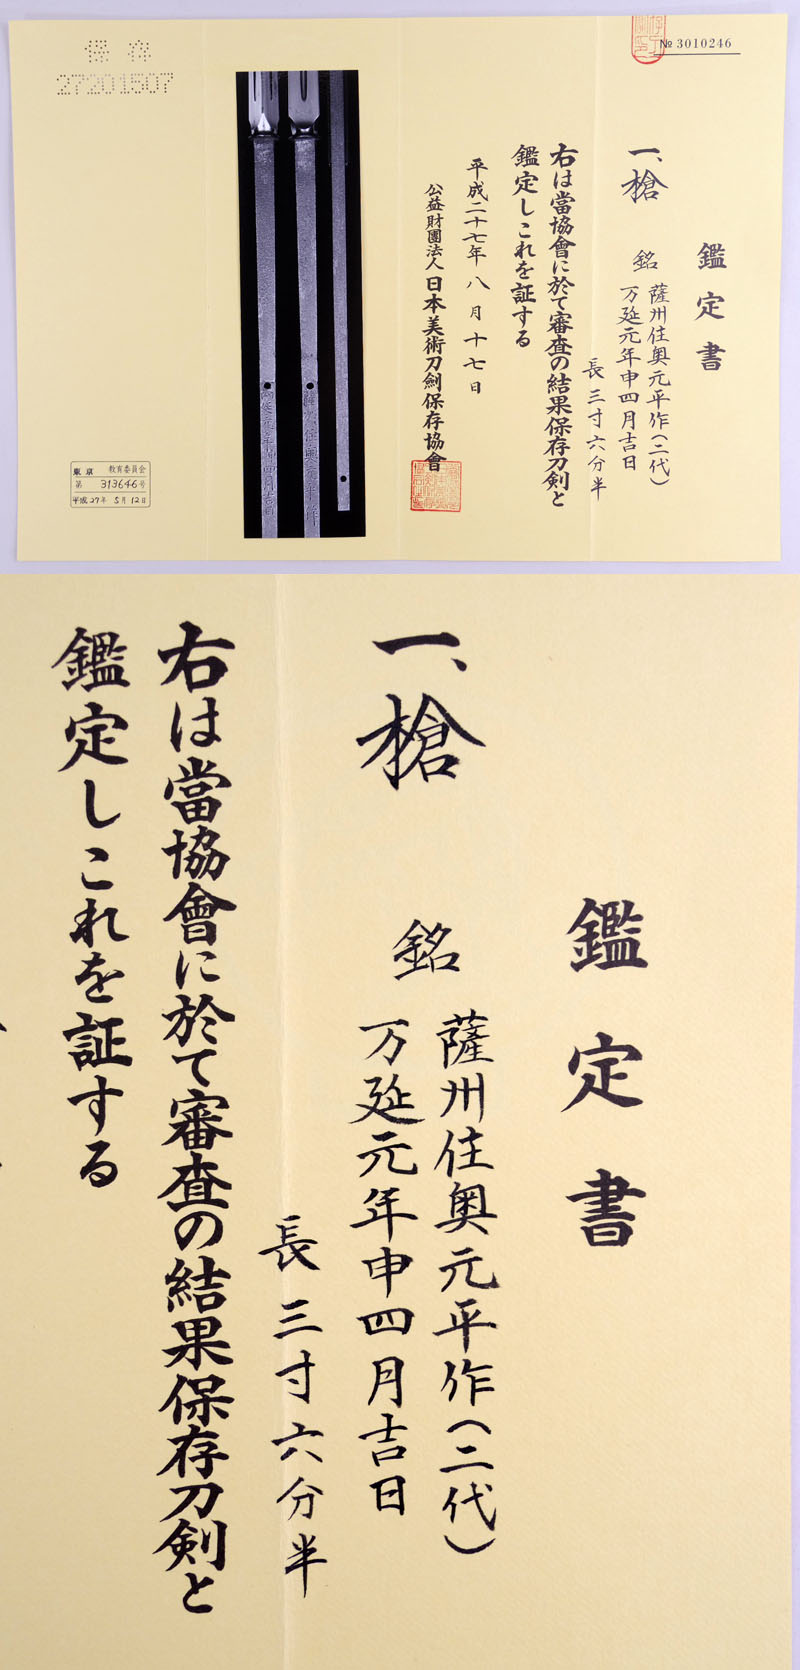 № 3010246
鑑定書
一、槍
銘 薩州住奥元平作(二代)
万延元年申四月吉日
長 三寸六分半
右は當協會に於て審査の結果保存刀剣と
鑑定しこれを証する
平成二十七年八月十七日
公益財團法人日本美術刀劍保存協會
保存
27201507
東京 教育委員会
第 313646号
平成27年 5月12日
鑑定書
一、槍
銘 薩州住奥元平作(二代)
万延元年申四月吉日
長 三寸六分半
右は當協會に於て審査の結果保存刀剣と
鑑定しこれを証する